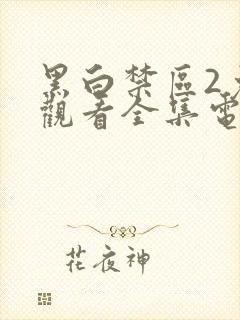 黑白禁區2
觀看全集電
花夜神